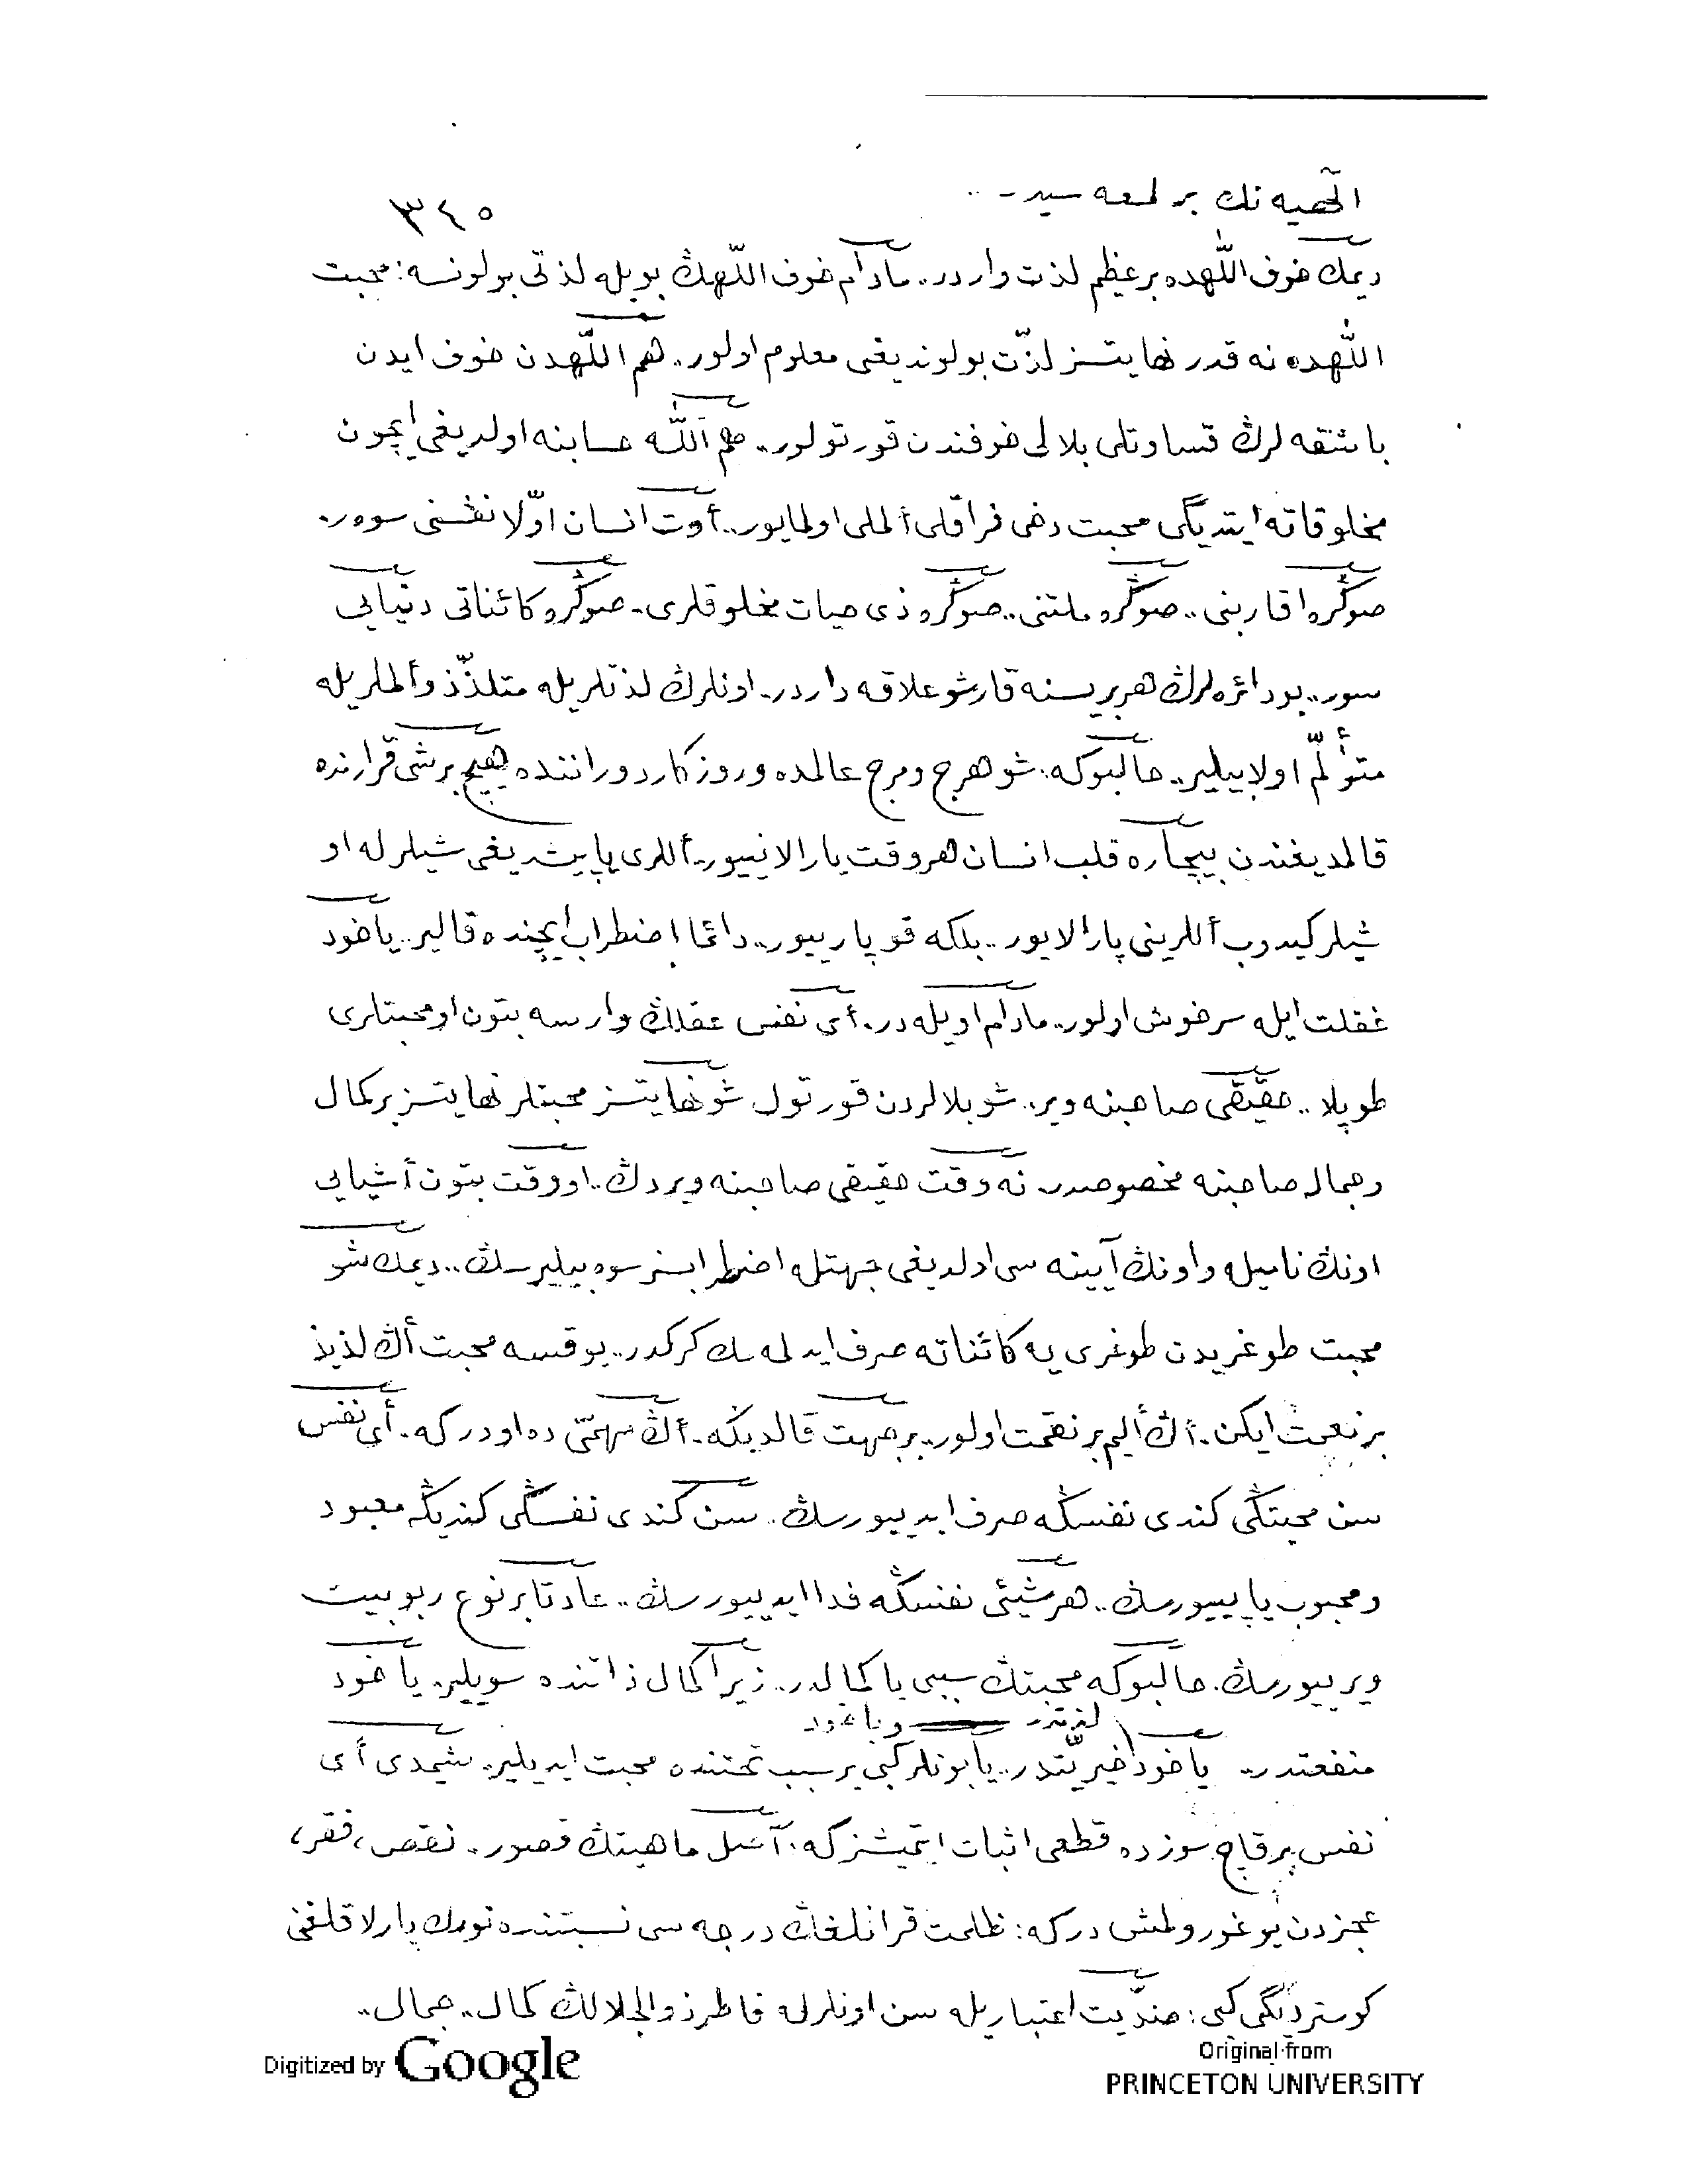 الٓهيه نك بر لمعه سيدر..
٣٤٥
ديمك خوف اللّٰهده بر عظيم لذت واردر.. مادام خوف اللّٰهڭ بويله لذتى بولونسه: محبت
اللّٰهده نه قدر نهايتسز لذّت بولونديغى معلوم اولور.. هم اللّٰهدن خوف ايدن
باشقه لرڭ قساوتلى بلالى خوفندن قورتولور.. هم اللّٰه حسابنه اولديغى ايچون
مخلوقاته ايتديگى محبت دخى فراقلى ألملى اولمايور.. أوت انسان اوّلا نفسنى سوەر.
صوڭره اقاربنى.. صوڭره ملتنى.. صوڭره ذى حيات مخلوقلرى.. صوڭره كائناتى دنيايى
سور.. بو دائره لرڭ هر بريسنه قارشو علاقه داردر. اونلرڭ لذتلريله متلذّذ و ألملريله
متألّم اولابيلير.. حالبوكه: شو هرج و مرج عالمده و روزكار دوراننده هيچ بر شى قرارنده
قالمديغندن بيچاره قلب انسان هر وقت يارالانييور.. أللرى ياپيشديغى شيلرله او
شيلر كيدوب أللرينى پارالايور.. بلكه قوپارييور.. دائما اضطراب ايچنده قالير.. ياخود
غفلت ايله سرخوش اولور.. مادام اويله در. أى نفس عقلڭ وارسه بتون او محبتلرى
طوپلا.. حقيقى صاحبنه وير. شو بلالردن قورتول شو نهايتسز محبتلر نهايتسز بر كمال
و جمال صاحبنه مخصوصدر. نه وقت حقيقى صاحبنه ويردڭ.. او وقت بتون أشيايى
اونڭ ناميله و اونڭ آيينه سى اولديغى جهتله اضطرابسز سوه بيليرسڭ.. ديمك شو
محبت طوغريدن طوغرى يه كائناته صرف ايدلمه مك كركدر.. يوقسه محبت أڭ لذيذ
بر نعمت ايكن. أڭ أليم بر نقمت اولور.. بر جهت قالديكه. أڭ مهمّى ده اودركه. أى نفس
سن محبتڭى كندى نفسڭه صرف ايدييورسڭ. سن كندى نفسڭى كنديڭه معبود
و محبوب ياپييورسڭ.. هر شيئى نفسڭه فدا ايدييورسڭ.. عادتا بر نوع ربوبيت
ويرييورسڭ. حالبوكه محبتڭ سببى يا كمالدر.. زيرا كمال ذاتنده سويلير. ياخود
منفعتدر.. لذتدر وياخود ياخود خيريّتدر.. يا بونلر كبى بر سبب تحتنده محبت ايديلير. شيمدى أى
نفس بر قاچ سوزده قطعى اثبات ايتمشزكه: آصل ماهيتڭ قصور. نقص، فقر،
عجزدن يوغورولمش دركه: ظلمت قرانلغڭ درجه سى نسبتنده نورڭ پارلاقلغنى
كوسترديگى كبى: ضدّيت اعتباريله سن اونلرله فاطر ذوالجلالڭ كمال.. جمال..
Digitized by Google
Original from
PRINCETON UNIVERSITY